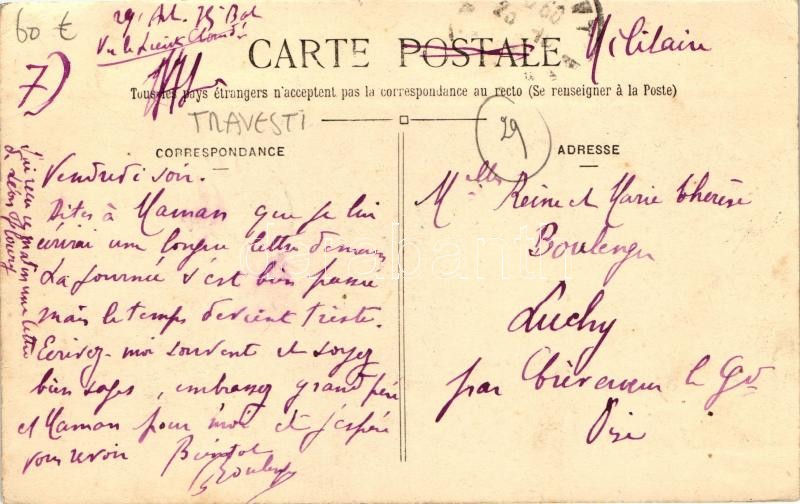 60 €
29e Art. 75e Bat
Vu le Lieut.
7)
CARTE POSTALE Militaire
Tous les pays étrangers n'acceptent pas la correspondance au recto (Se renseigner à la Poste)
TRAVESTI
29
CORRESPONDANCE
Vendredi soir.
Dites à Maman que je lui
écrirai une longue lettre demain
La journée s'est bien passée
mais le temps devient triste.
Ecrivez-moi souvent et soyez
bien sages, embrassez grand père
et Maman pour moi et j'espère
vous revoir Bientôt
J'ai reçu ce matin une lettre
de Léon
ADRESSE
Melles Reine et Marie Thérèse
Boulenger
Luchy
par Crèvecoeur le Gd
Oise
darabanth